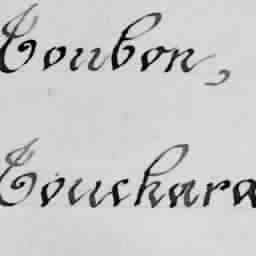 Toubon,
Touchara